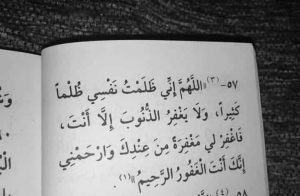 ٥٧-(٣)«اللَّهُمَّ إِنِّي ظَلَمْتُ نَفْسِي ظُلْماً
كَثِيراً، وَلَا يَغْفِرُ الذُّنُوبَ إِلَّا أَنْتَ،
فَاغْفِرْ لِي مَغْفِرَةً مِنْ عِنْدِكَ وَارْحَمْنِي
إِنَّكَ أَنْتَ الْغَفُورُ الرَّحِيمُ»(١).
٥٨